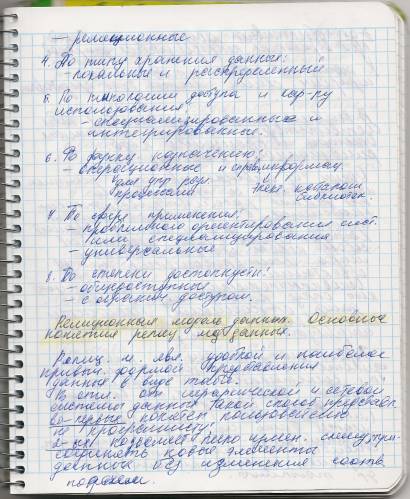 – реляционные
4. По типу хранения данных:
– локальный и распределенный
5. По технологии доступа и
использования
– специализированные и
интегрированные.
6. По функц назначению:
– операционные и справ информац
для упр
процессами катологи
библиотек.
7. По сфере применения.
– ориентирования
или специализирования
– универсальные
8. По степени доступности:
– общедоступные
– с огранич доступом.
Реляционная модель данных. Основные
понятия реляц мод данных.
Реляц. м. явл. удобной и наиболее
привыч. формой представления
данных в виде табл.
В отл. от иерархической и сетевой
системы данных такой способ представл
во-первых понятен пользователю
и
2-ых позволяет легко измен.
соединять новые элементы
данных без изменения